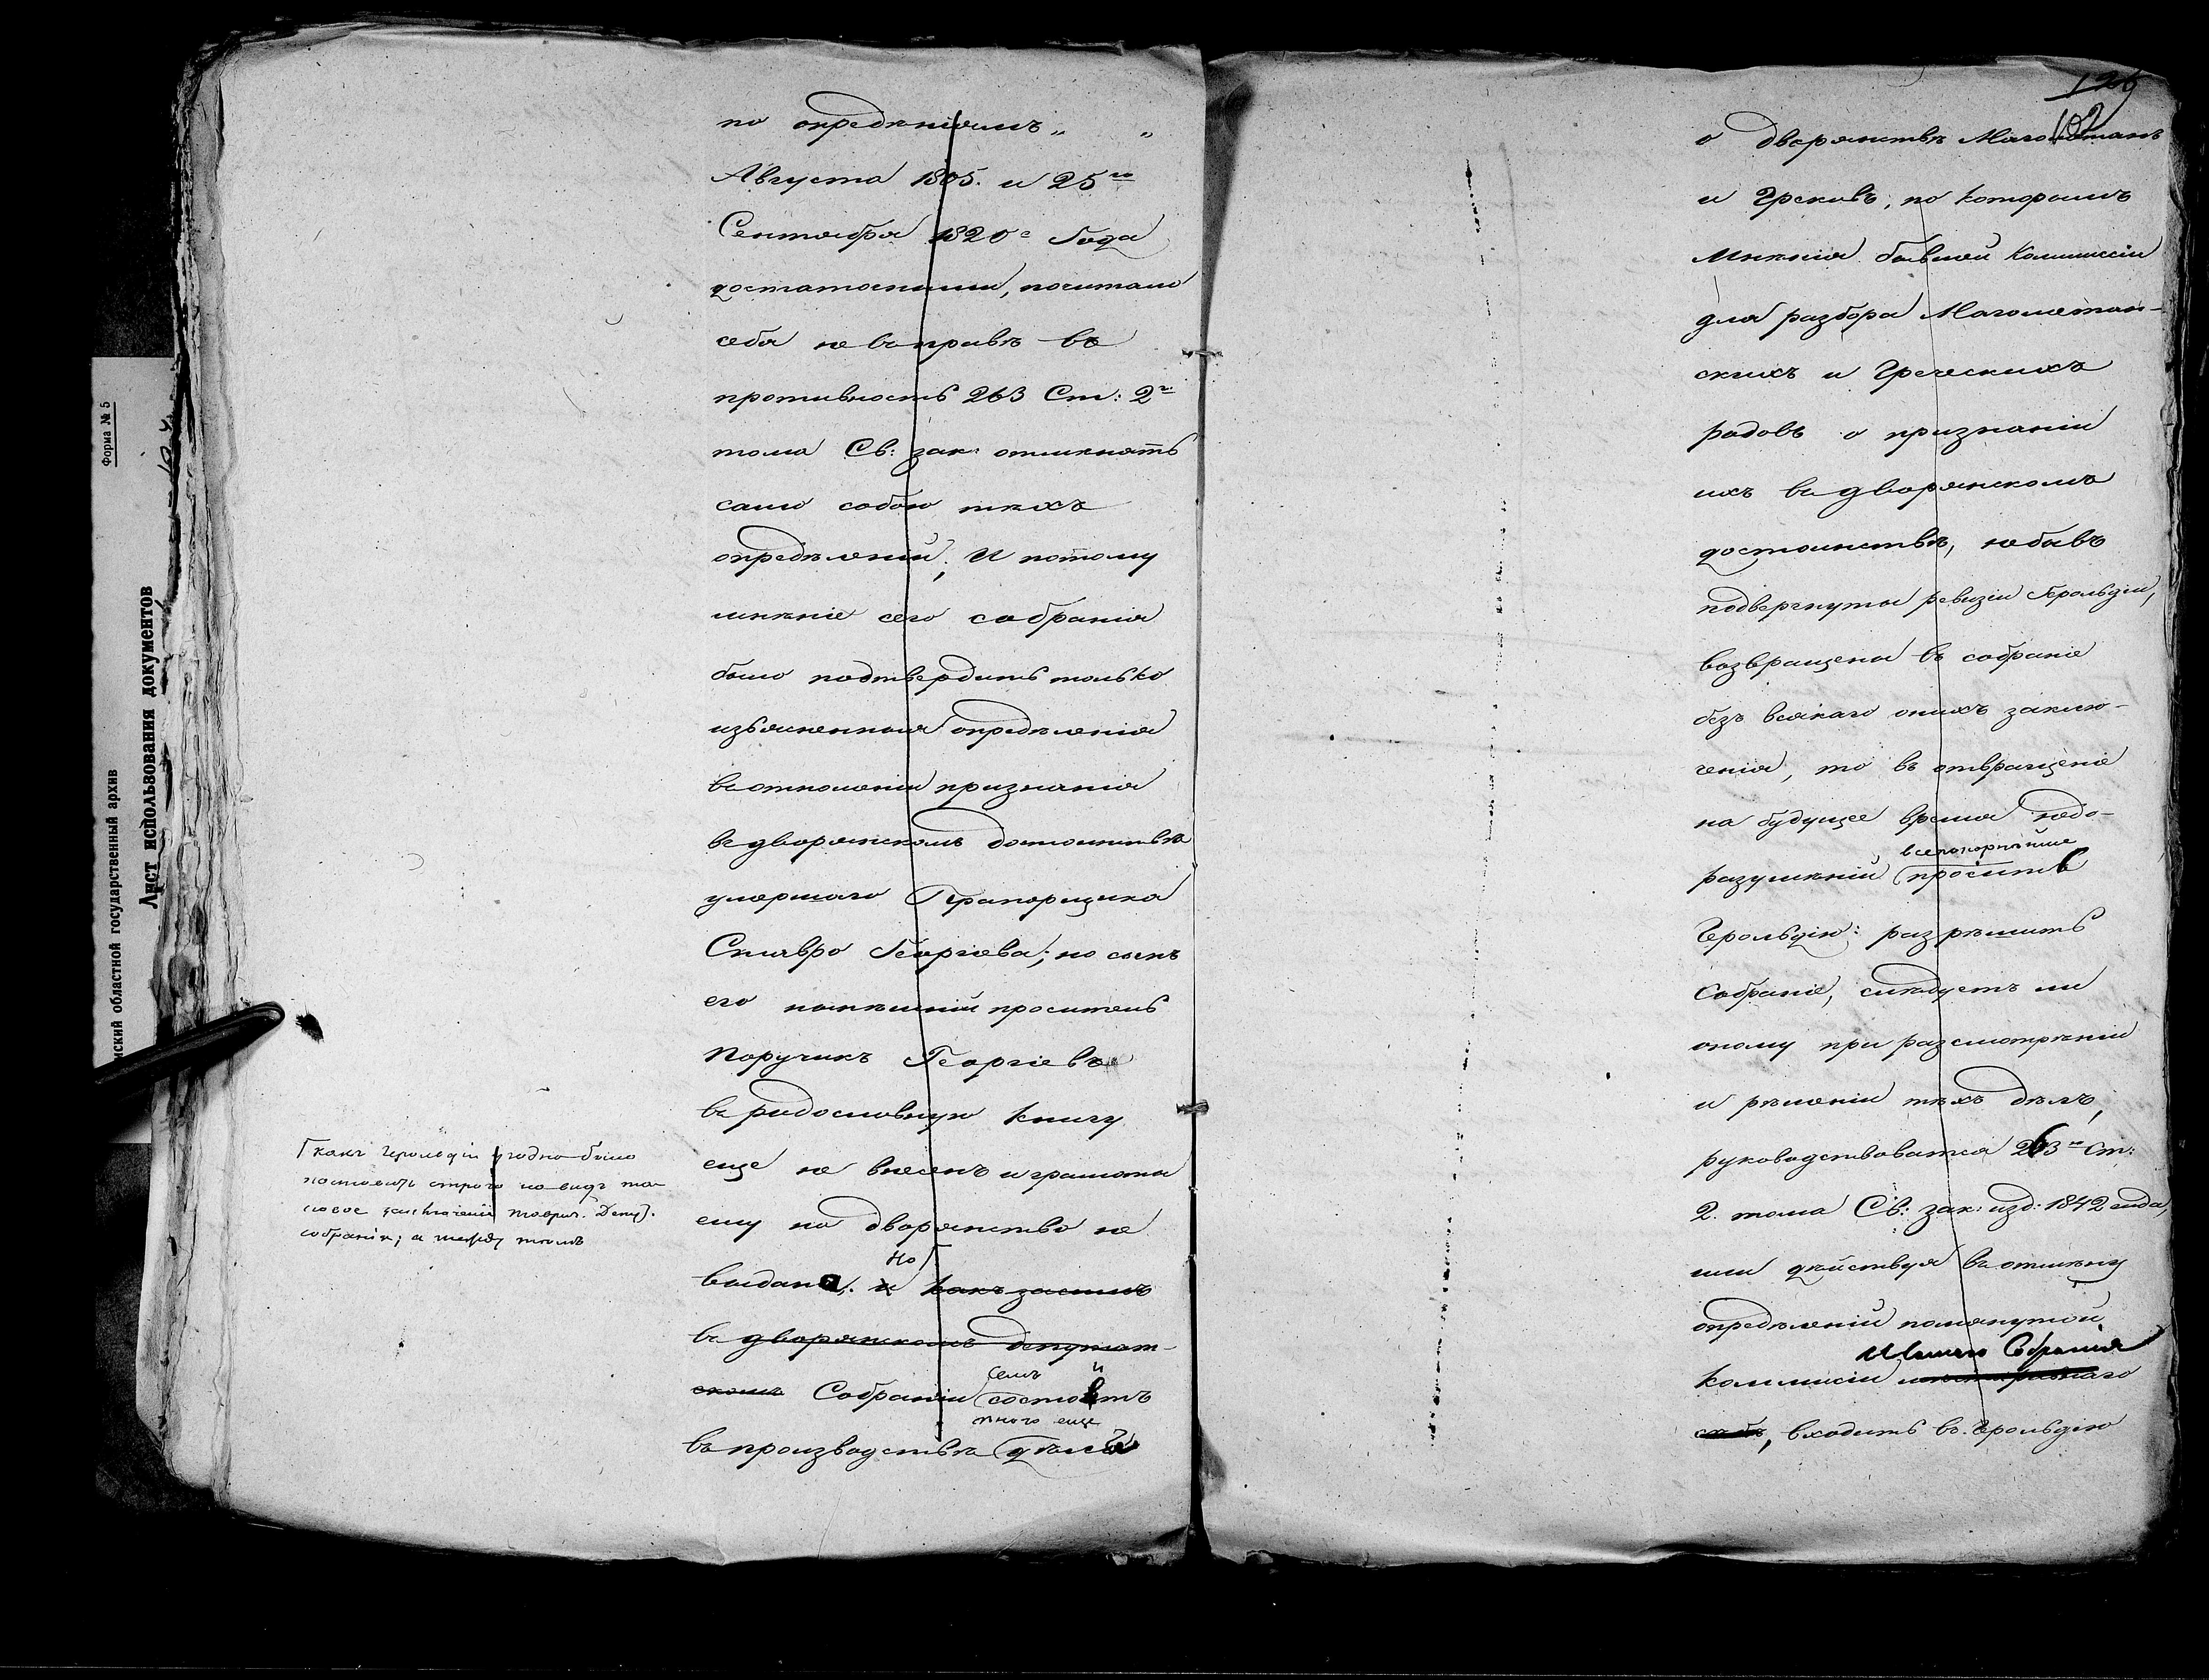 по опредѣленіямъ „ „
Августа 1805. и 25го
Сентября 1820г Года
достаточными, почитало
себя не вправѣ въ
противность 263 Ст: 2г
тома Св: зак: отмѣнять
само собою тѣхъ
опредѣленій; И потому
мнѣніе сего собранія
было подтвердить только
изъясненныя опредѣленія
въ отношеніи признанія
въ дворянскомъ достоинствѣ
умершаго Прапорщика
Ставро Георгіева; но сынъ
его нынѣшній проситель
Поручикъ Георгіевъ
въ родословную книгу
еще не внесенъ и грамоты
ему на дворянство не
Но
выдана. и какъ за симъ
въ дворянскомъ депутат-
скомъ Собраніи состоитъ
семъ
много еще
въ производствѣ дѣлъ
как Герольдіи угодно было
поставить строго на видъ та-
ковое заключеніе Таврич. Депут.
собранія; а между тѣмъ
126
102
о дворянствѣ Магометанъ
и Грековъ, по которымъ
Мнѣнія бывшей Коммиссіи
для разбора Магометан-
скихъ и Греческихъ
родовъ о признаніи
ихъ въ дворянскомъ
достоинствѣ, небывъ
подвергнуты ревизіи Герольдіи,
возвращены въ собраніе
безъ всякаго онихъ заклю-
ченія, то въ отвращеніе
на будущее время недо-
всепокорнѣйше
разумѣній просить
Герольдію: разрѣшить
Собраніе, слѣдуетъ ли
оному при разсмотрѣніи
и рѣшеніи тѣхъ дѣлъ,
руководствоваться 263ю Ст:
2. тома Св: зак: изд: 1842 года,
или дѣйствуя въ отмѣну
опредѣленій помянутой
Собранія
Коммисіи
, входить въ Герольдію
Форма № 5
областной государственный архив
Лист использования документов